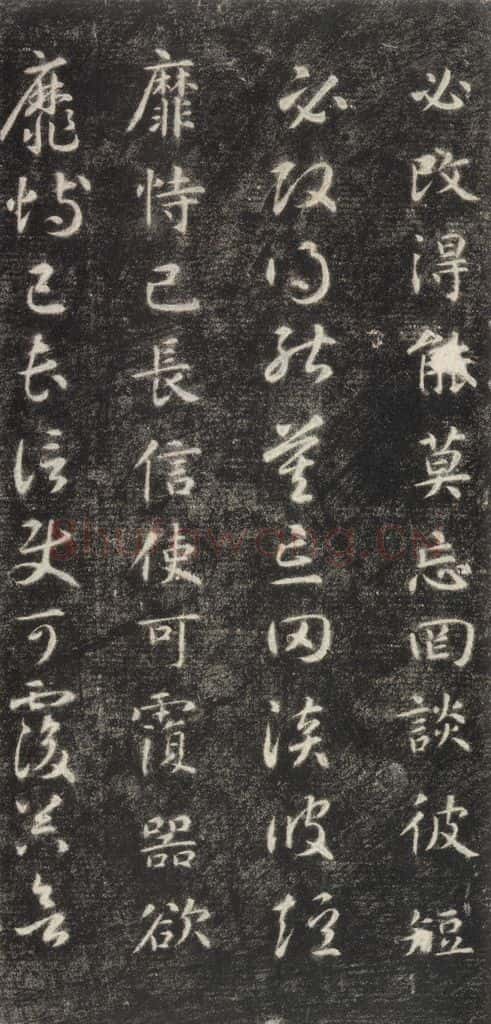 必改得能莫忘罔談彼短
必改得能莫忘罔談彼短
靡恃己長信使可覆器欲
靡恃己長信使可覆器欲
Shufawang.CN